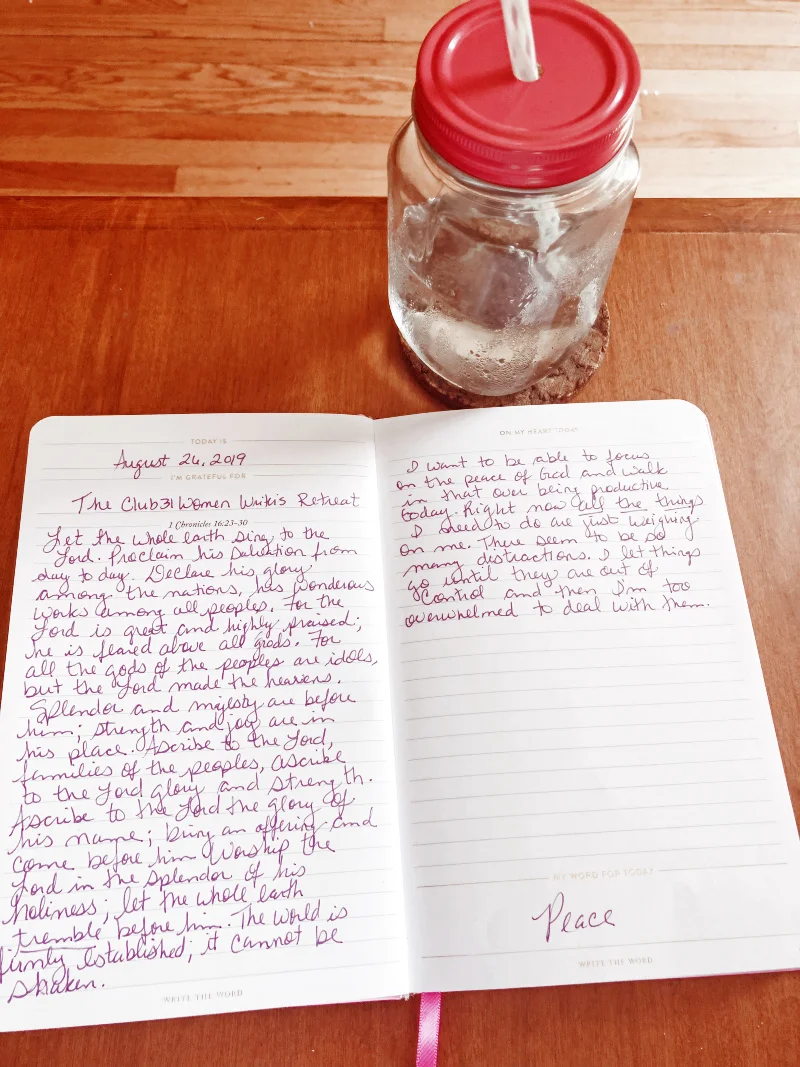 TODAY IS
August 26, 2019
I'M GRATEFUL FOR
The Club31Women Writers Retreat
1 Chronicles 16:23-30
Let the whole earth sing to the
Lord. Proclaim his salvation from
day to day. Declare his glory
among the nations, his wonderous
works among all peoples. For the
Lord is great and highly praised;
he is feared above all gods. For
all the gods of the peoples are idols,
but the Lord made the heavens.
Splendor and majesty are before
him; strength and joy are in
his place. Ascribe to the Lord,
families of the peoples, ascribe
to the Lord glory and strength.
Ascribe to the Lord the glory of
his name; bring an offering and
come before him. Worship the
Lord in the splendor of his
holiness; let the whole earth
tremble before him. The world is
firmly established; it cannot be
shaken.
WRITE THE WORD
ON MY HEART TODAY
I want to be able to focus
on the peace of God and walk
in that over being productive
today. Right now all the things
I need to do are just weighing
on me. There seem to be so
many distractions. I let things
go until they are out of
control and then I'm too
overwhelmed to deal with them.
MY WORD FOR TODAY
Peace
WRITE THE WORD